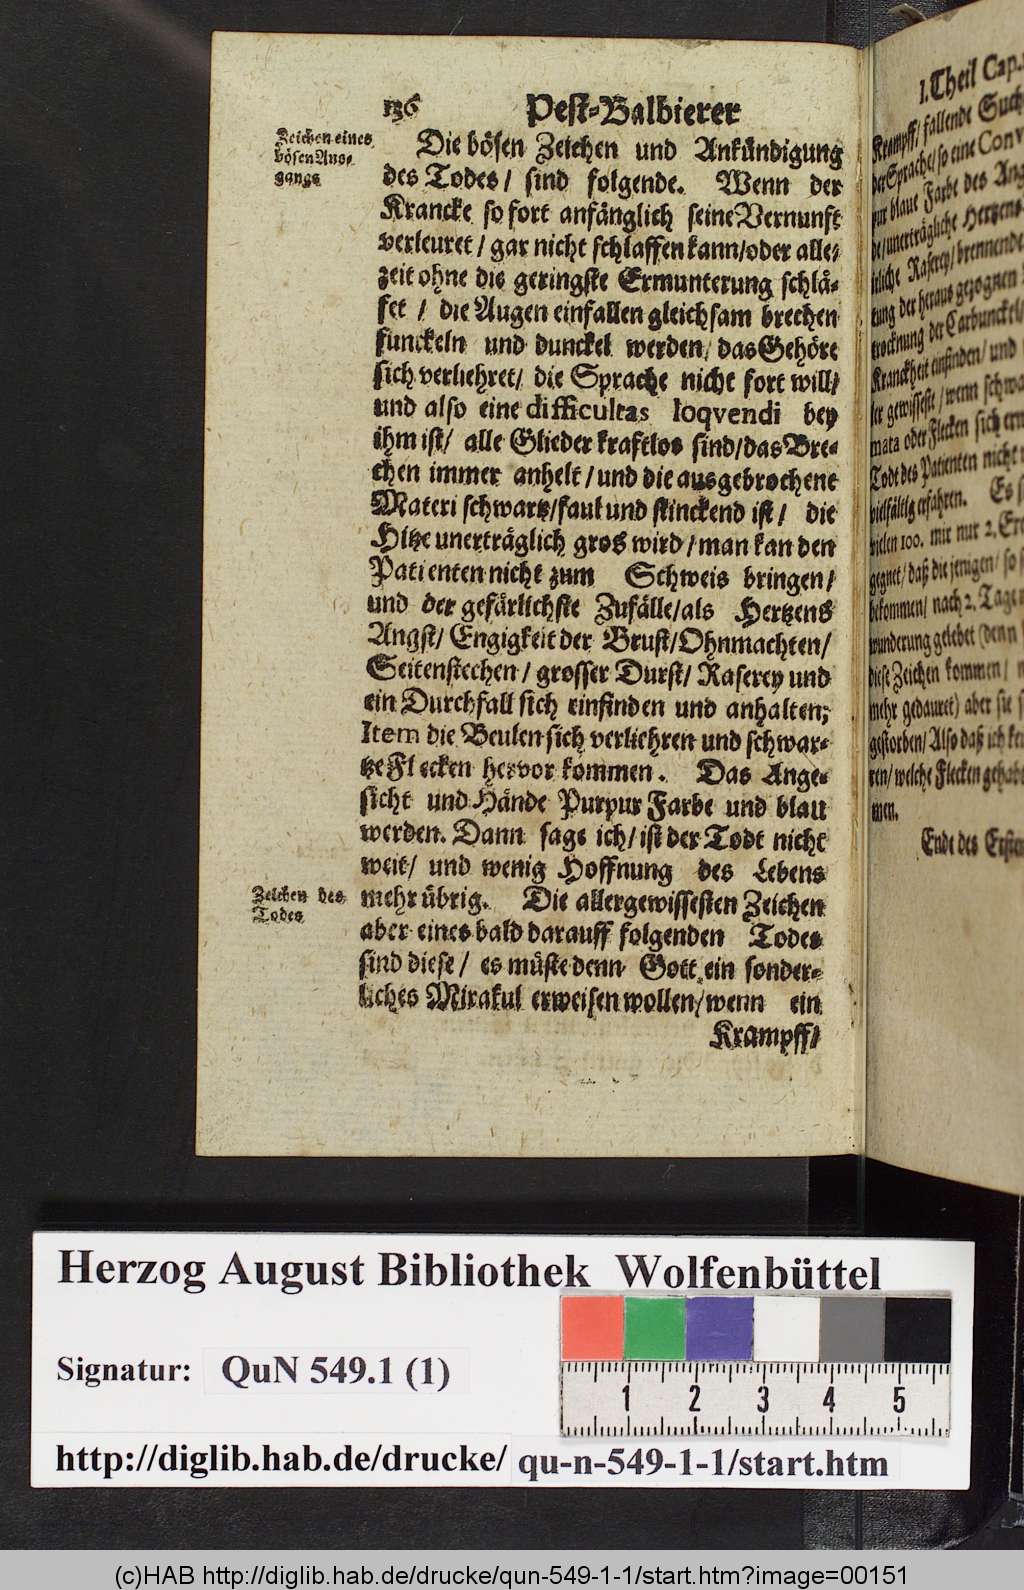 136 Pest-Balbierer
Zeichen eines
bösen Aus-
gangs
Die bösen Zeichen und Ankündigung
des Todes/ sind folgende. Wenn der
Krancke so fort anfänglich seine Vernunft
verleuret/ gar nicht schlaffen kann/ oder alle-
zeit ohne die geringste Ermunterung schlä-
fet / die Augen einfallen gleichsam brechen
funckeln und dunckel werden/ das Gehöre
sich verliehret/ die Sprache nicht fort will/
und also eine difficultas loqvendi bey
ihm ist/ alle Glieder krafftlos sind/ das Bre-
chen immer anhelt/ und die ausgebrochene
Materi schwartz/ faul und stinckend ist/ die
Hitze unerträglich gros wird/ man kan den
Patienten nicht zum Schweis bringen/
und der gefärlichste Zufälle/ als Hertzens
Angst/ Engigkeit der Brust/ Ohnmachten/
Seitenstechen/ grosser Durst/ Raserey und
ein Durchfall sich einfinden und anhalten;
Item die Beulen sich verliehren und schwar-
tze Flecken hervor kommen. Das Ange-
sicht und Hände Purpur Farbe und blau
werden. Dann sage ich/ ist der Todt nicht
weit/ und wenig Hoffnung des Lebens
Zeichen des
Todes
mehr übrig. Die allergewissesten Zeichen
aber eines bald darauff folgenden Todes
sind diese/ es müste denn Gott ein sonder-
liches Mirakul erweisen wollen/ wenn ein
Krampff/
I. Theil Cap.
Krampff/ fallende Such
der Sprache/ so eine Conv
pur blaue Farbe des Ang
de/ unerträgliche Hertzens
liche Raserey/ brennende
tung der heraus gezognen
trocknung der Carbunckel/
Kranckheit einfinden/ und
ler gewisseste/ wenn schwa
mata oder Flecken sich ern
Todt des Patienten nicht
vielfältig erfahren. Es s
vielen 100. mir nur 2. Ex
gegnet/ daß die jenigen/ so
bekommen/ nach 2. Tage
wunderung gelebet (denn
diese Zeichen kommen/
mehr gedauret) aber sie s
gestorben/ Also daß ich kei
ren/ welche Flecken gehabt
men.
Ende des Ersten
Herzog August Bibliothek Wolfenbüttel
Signatur: QuN 549.1 (1)
1 2 3 4 5
http://diglib.hab.de/drucke/ qu-n-549-1-1/start.htm
(c)HAB http://diglib.hab.de/drucke/qun-549-1-1/start.htm?image=00151